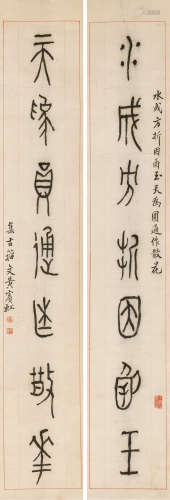 水成方折因有玉
水成方折因有玉天為圓通作散花
天為員通作散華
集古籀文黃賓虹